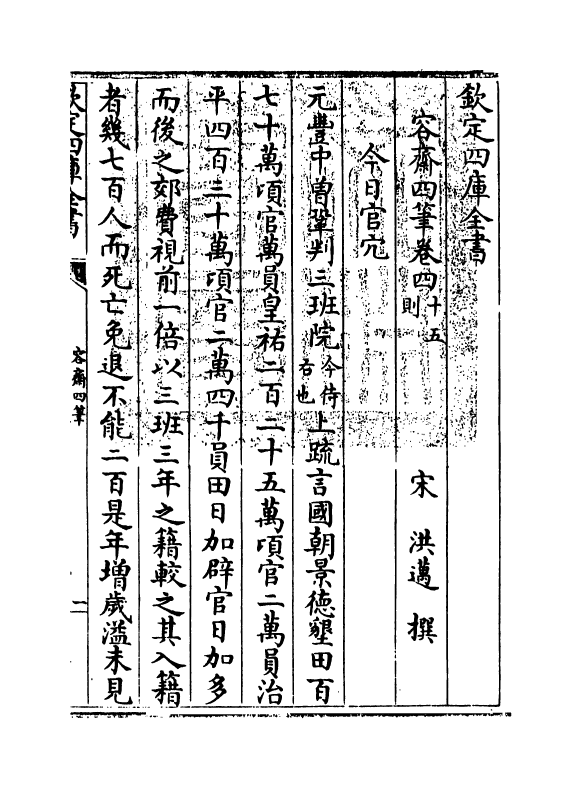 欽定四庫全書
容齋四筆卷四十五則 宋 洪邁 撰
今日官宂
元豐中曾鞏判三班院今侍右也上疏言國朝景德墾田百
七十萬項官萬員皇祐二百二十五萬項官二萬員治
平四百三十萬項官二萬四千員田日加辟官日加多
而後之郊費視前一倍以三班三年之籍較之其入籍
者幾七百人而死亡免退不能二百是年增歲溢未見
欽定四庫全書
容齋四筆
一